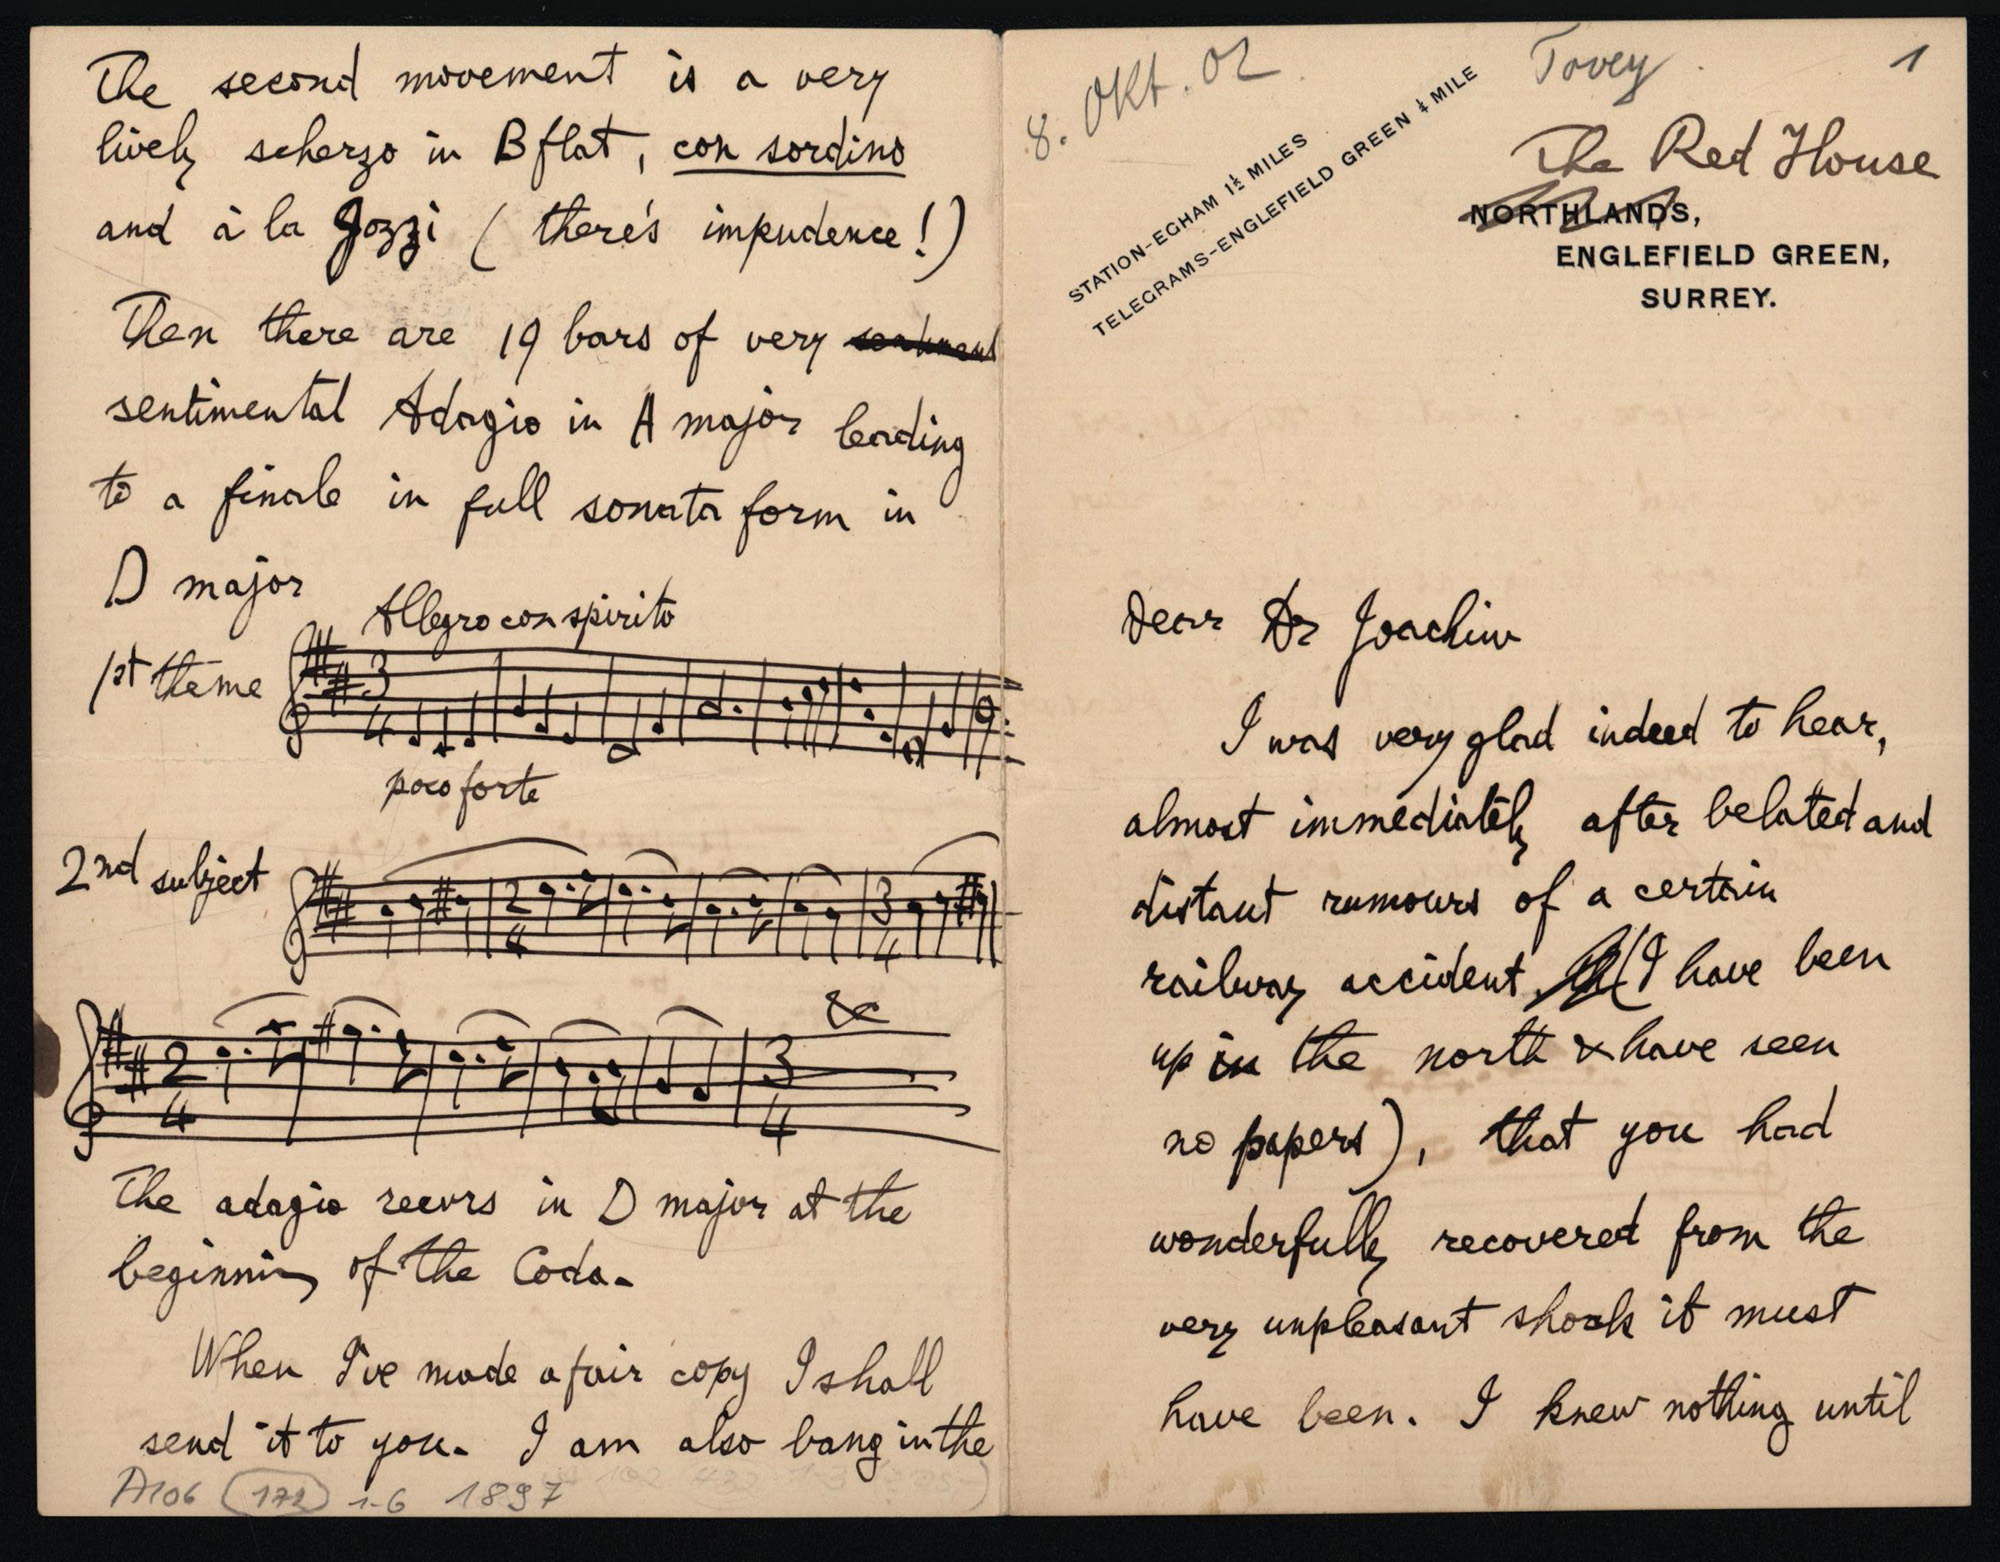 The second movement is a very
lively scherzo in B flat, con sordino
and à la Gozzi (there's impudence!)
Then there are 19 bars of very
sentimental Adagio in A major leading
to a finale in full sonata form in
D major
Allegro con spirito
1st theme
3
4
poco forte
2nd subject
2
4
3
4
2
4
3
4
&c
The adagio recurs in D major at the
beginning of the Coda.
When I've made a fair copy I shall
send it to you. I am also bang in the
A106 (172) 1-6 1897
8. Okt. 02
Tovey
1
STATION-EGHAM 1½ MILES
TELEGRAMS-ENGLEFIELD GREEN ¼ MILE
The Red House
NORTHLANDS,
ENGLEFIELD GREEN,
SURREY.
Dear Dr Joachim
I was very glad indeed to hear,
almost immediately after belated and
distant rumours of a certain
railway accident (I have been
up in the north & have seen
no papers), that you had
wonderfully recovered from the
very unpleasant shock it must
have been. I knew nothing until